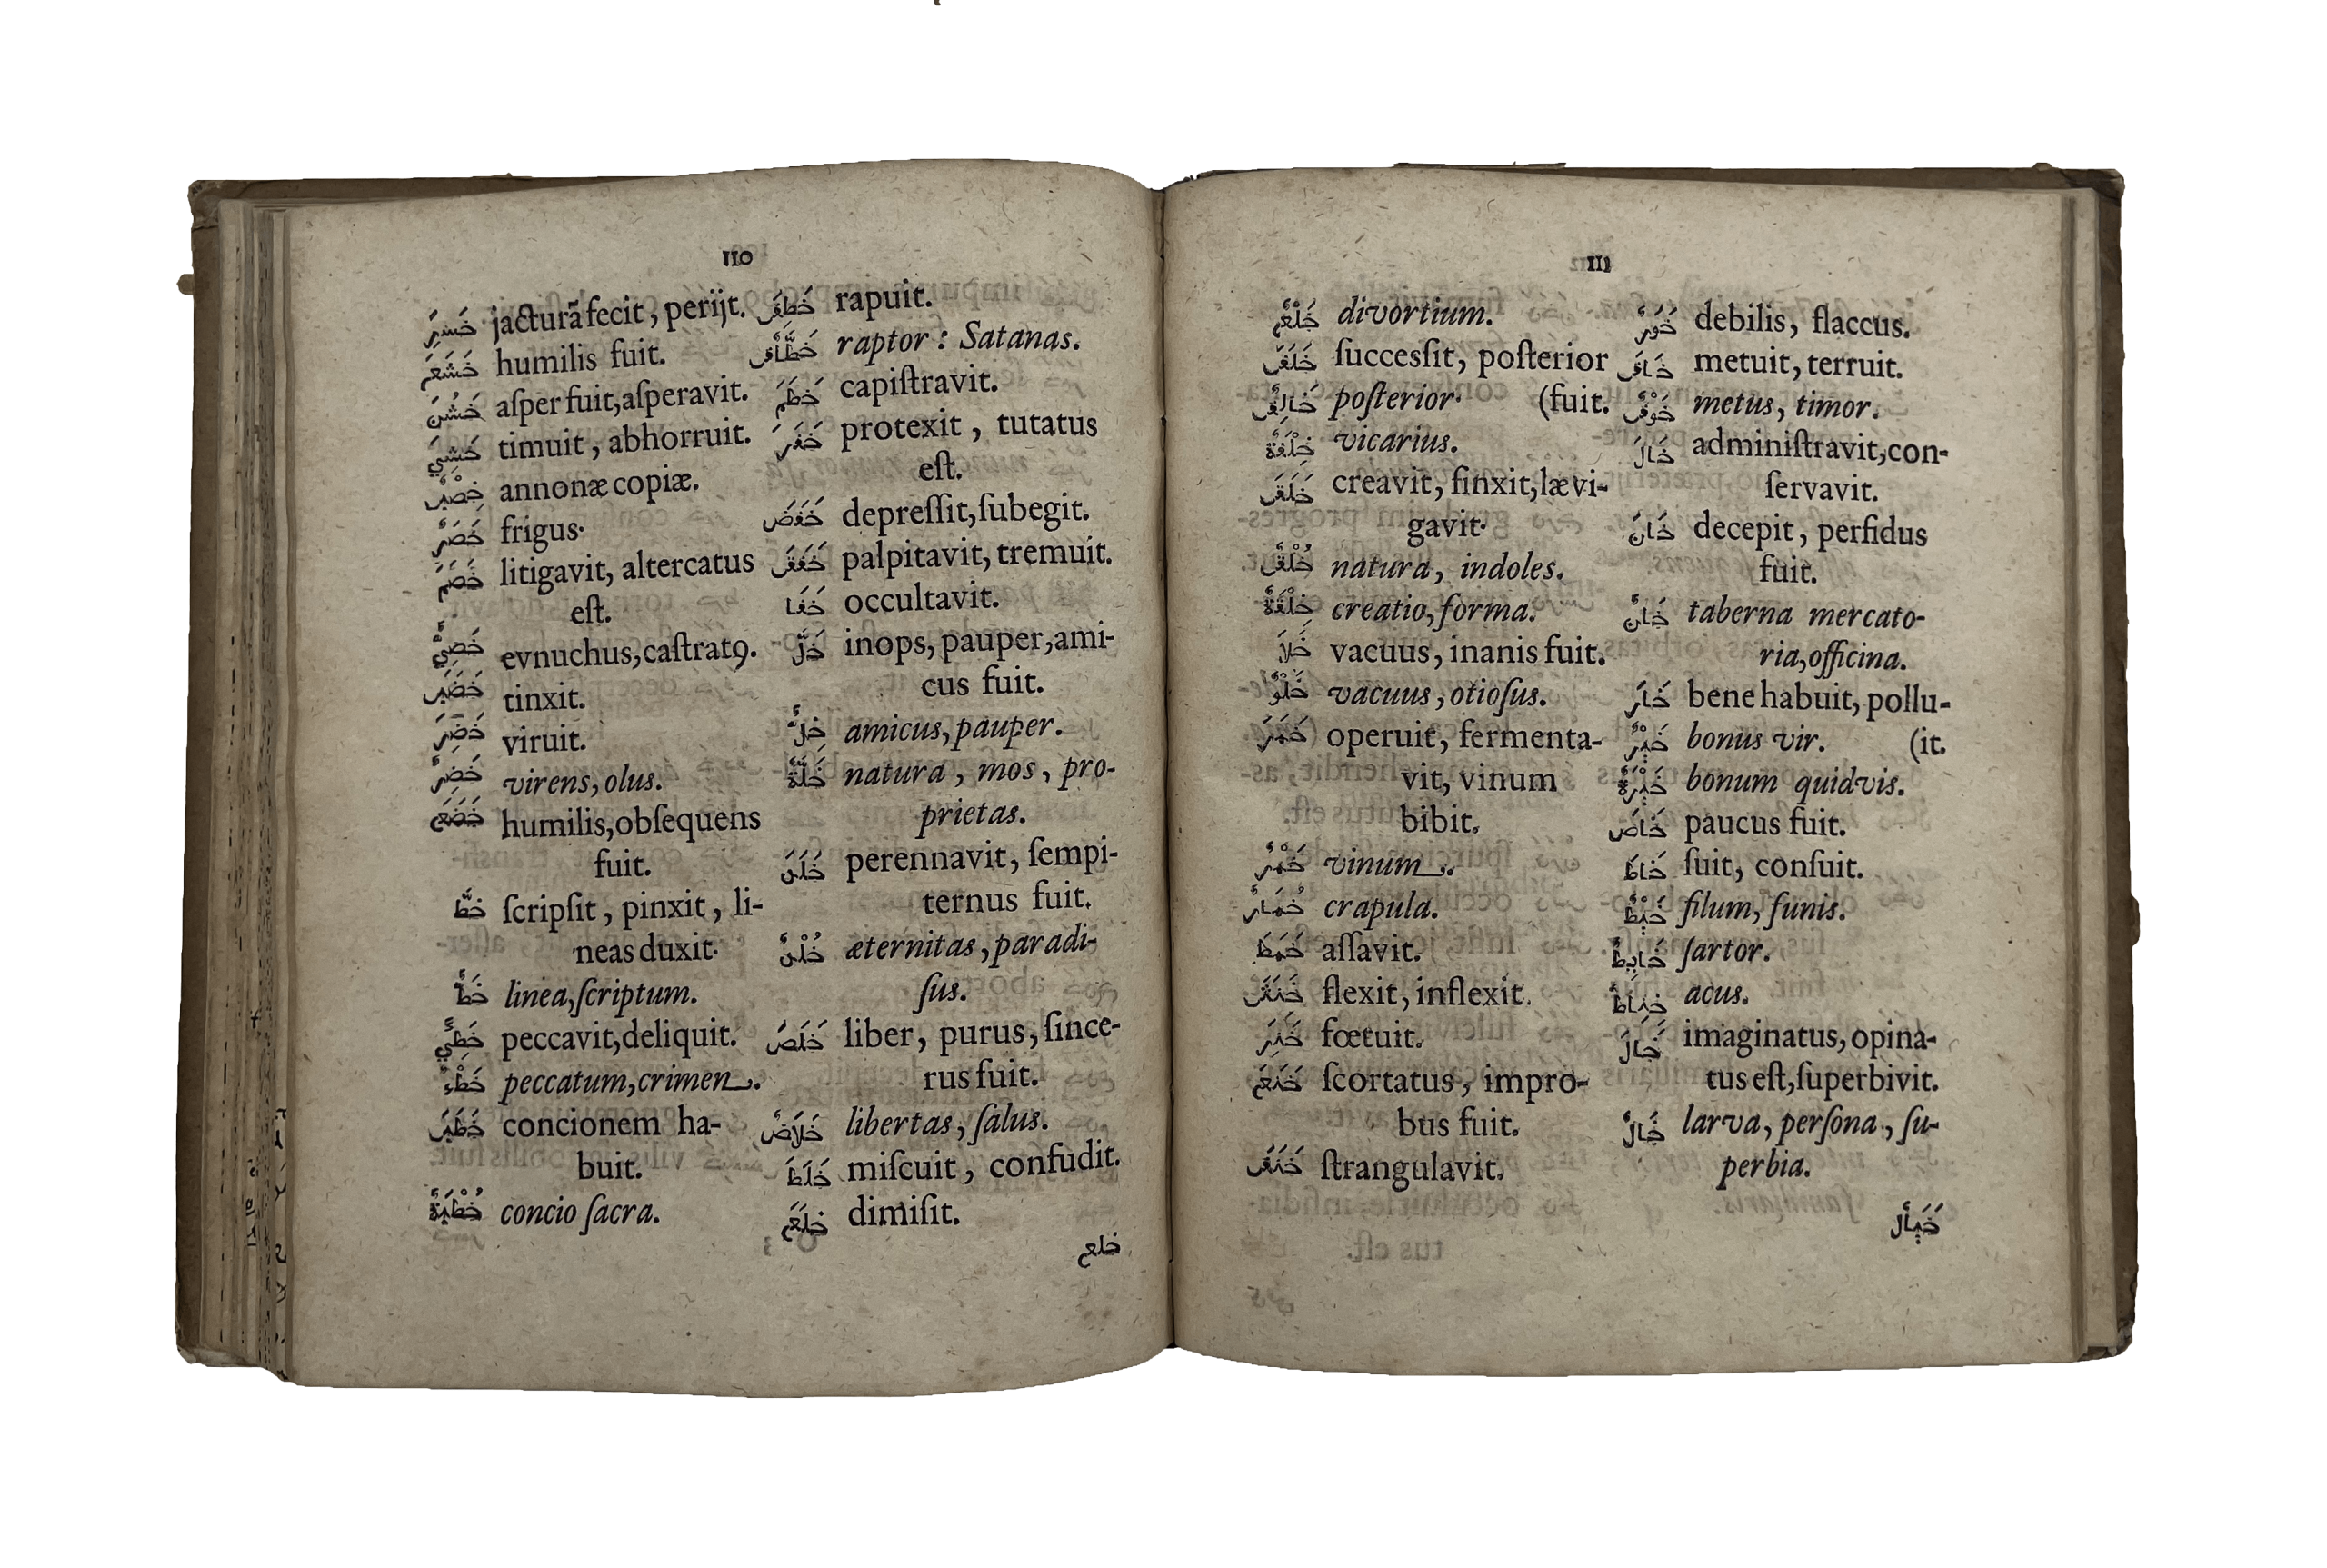 110
خَسِرَ jacturã fecit, perijt.
خَشَعَ humilis fuit.
خَشُنَ aſper fuit, aſperavit.
خَشِيَ timuit, abhorruit.
خِصْبٌ annonæ copiæ.
خَصَرٌ frigus.
خَصَمَ litigavit, altercatus
eſt.
خَصِيٌّ evnuchus, caſtratꝰ.
خَضَبَ tinxit.
خَضِرَ viruit.
خَضِرٌ virens, olus.
خَضَعَ humilis, obſequens
fuit.
خطَّ ſcripſit, pinxit, li-
neas duxit.
خَطٌّ linea, ſcriptum.
خَطِئَ peccavit, deliquit.
خَطْءٌ peccatum, crimen.
خَطَبَ concionem ha-
buit.
خُطْبَةٌ concio ſacra.
خَطَفَ rapuit.
خَطَّافٌ raptor: Satanas.
خَطَمَ capiſtravit.
خَفَرَ protexit, tutatus
eſt.
خَفَضَ depreſſit, ſubegit.
خَفَقَ palpitavit, tremuit.
خَفَا occultavit.
خَلَّ inops, pauper, ami-
cus fuit.
خِلٌّ amicus, pauper.
خَلَّةٌ natura, mos, pro-
prietas.
خَلَدَ perennavit, ſempi-
ternus fuit.
خُلْدٌ æternitas, paradi-
ſus.
خَلَصَ liber, purus, ſince-
rus fuit.
خَلَاصٌ libertas, ſalus.
خَلَطَ miſcuit, confudit.
خلَعَ dimiſit.
خلع
111
خَلْعٌ divortium.
خَلَفَ ſucceſſit, poſterior
خَالِفٌ poſterior. (fuit.
خِلْفَةٌ vicarius.
خَلَقَ creavit, finxit, lævi-
gavit.
خُلْقٌ natura, indoles.
خِلْقَةٌ creatio, forma.
خَلَا vacuus, inanis fuit.
خَلْوٌ vacuus, otioſus.
خَمَرَ operuit, fermenta-
vit, vinum
bibit.
خَمْرٌ vinum.
خُمَارٌ crapula.
خَمَطَ aſſavit.
خَنَفَ flexit, inflexit.
خَنِزَ fœtuit.
خَنَعَ ſcortatus, impro-
bus fuit.
خَنَقَ ſtrangulavit.
خَوَرٌ debilis, flaccus.
خَافَ metuit, terruit.
خَوْفٌ metus, timor.
خَالَ adminiſtravit, con-
ſervavit.
خَانَ decepit, perfidus
fuit.
خَانٌ taberna mercato-
ria, officina.
خَارَ bene habuit, pollu-
خَيْرٌ bonus vir. (it.
خَيْرَةٌ bonum quidvis.
خَاصَ paucus fuit.
خَاطَ ſuit, conſuit.
خَيْطٌ filum, funis.
خَايِطٌ ſartor.
خِيَاطٌ acus.
خَالَ imaginatus, opina-
tus eſt, ſuperbivit.
خَالٌ larva, perſona, ſu-
perbia.
خَيَالٌ